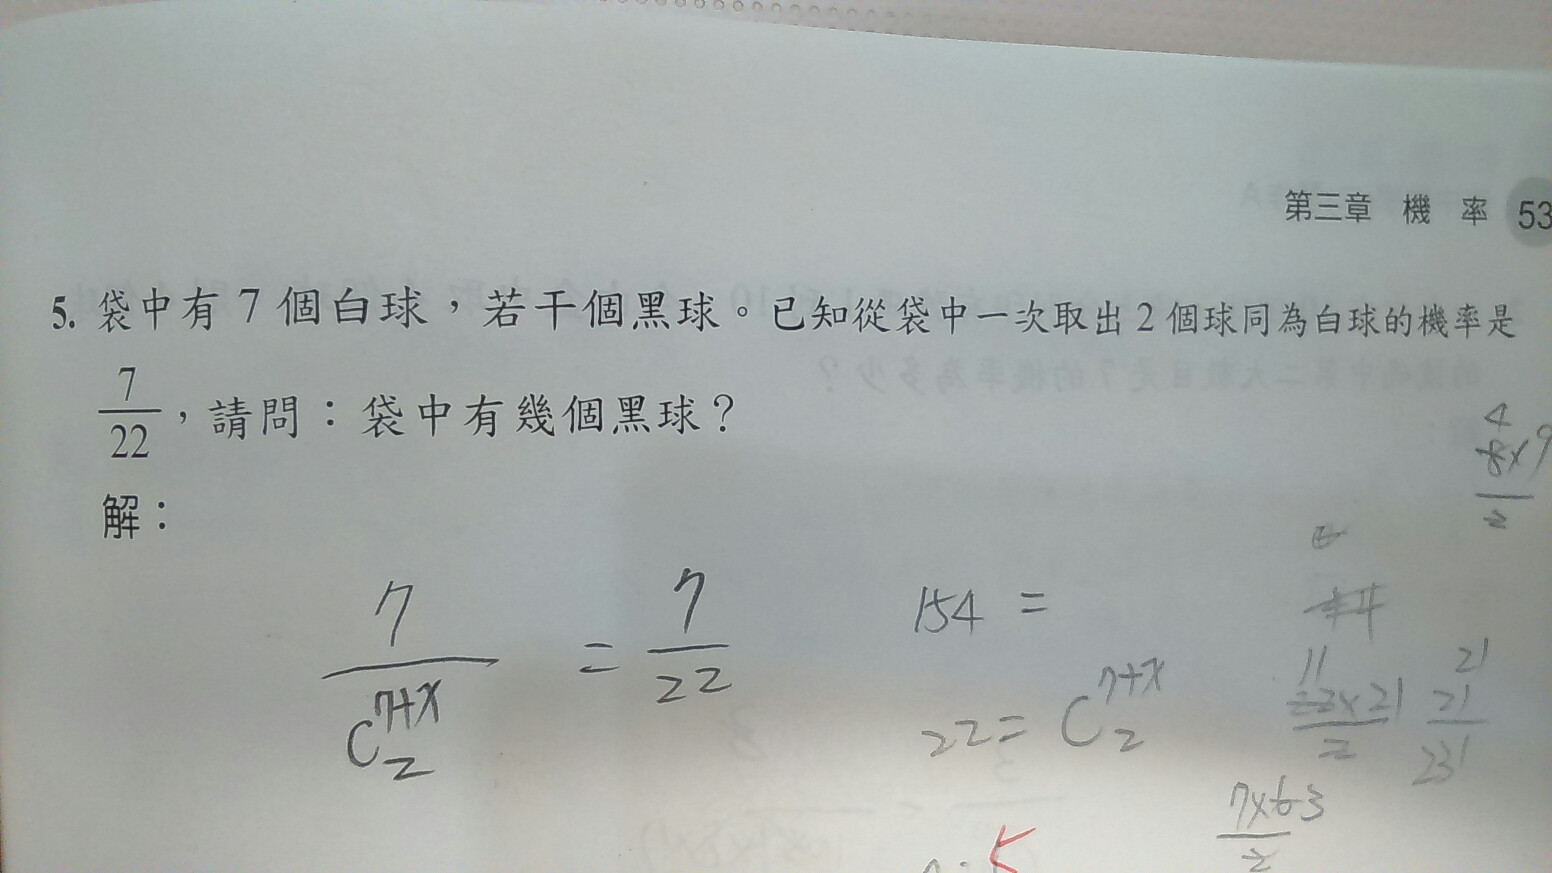 第三章 機 率 53
5. 袋中有 7 個白球，若干個黑球。已知從袋中一次取出 2 個球同為白球的機率是
7/22，請問：袋中有幾個黑球？
解：
7/C₂⁷⁺ˣ = 7/22
154 =
22 = C₂⁷⁺ˣ
4
8×9
2
11
22×21
2
21
21
231
7×6 3
2
5